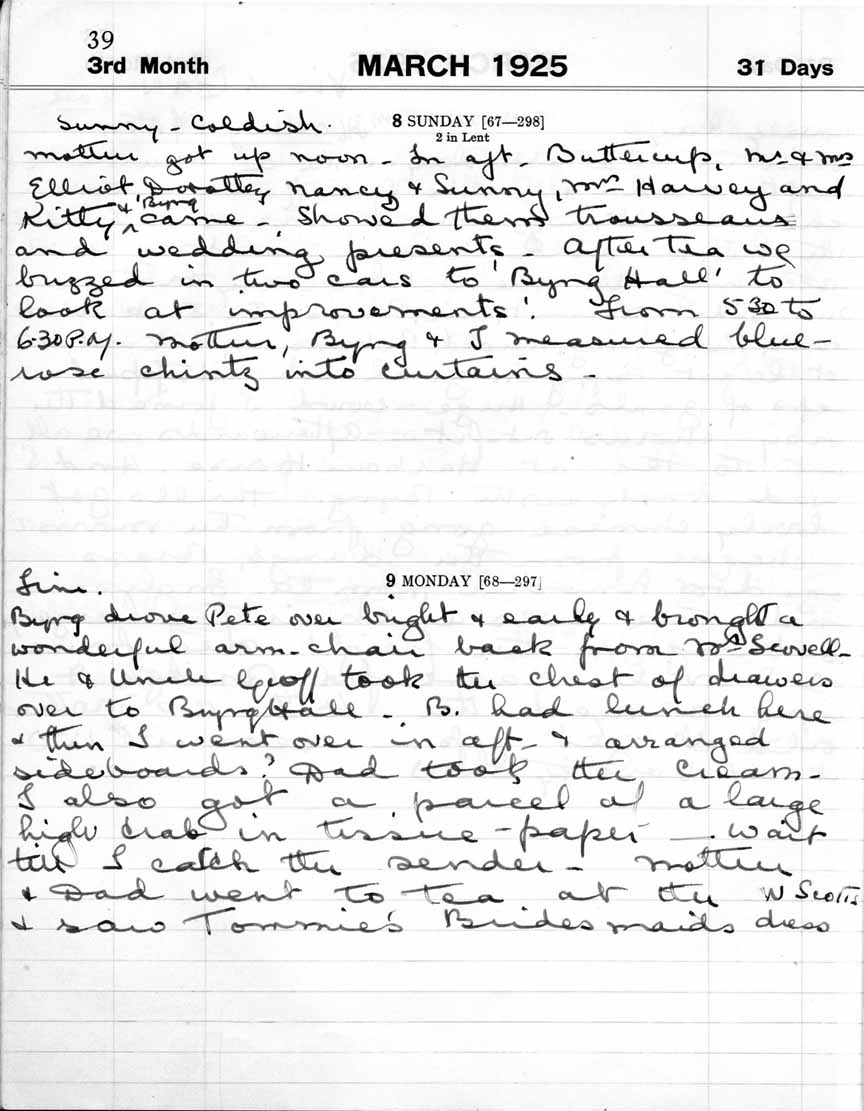 39
3rd Month MARCH 1925 31 Days
8 SUNDAY [67—298]
2 in Lent
Sunny - Coldish.
Mother got up noon - In aft. Buttercup, Mr & Mrs
Elliot, Dorothy, Nancy & Sunny, Mrs Harvey and
Kitty & Byng came - Showed them trousseaus
and wedding presents - After tea we
buzzed in two cars to 'Byng Hall' to
look at improvements'. From 5-30 to
6-30 P.M. Mother, Byng & I measured blue-
rose chintz into curtains -
9 MONDAY [68—297]
Fine.
Byng drove Pete over bright & early & brought a
wonderful arm-chair back from Mrs Scovell-
He & Uncle Geoff took the chest of drawers
over to Byng Hall - B. had lunch here
& then I went over in aft- & arranged
sideboards? Dad took the cream -
I also got a parcel of a large
high crab in tissue-paper - wait
till I catch the sender - Mother
& Dad went to tea at the W Scotts
& saw Tommie's Bridesmaids dress